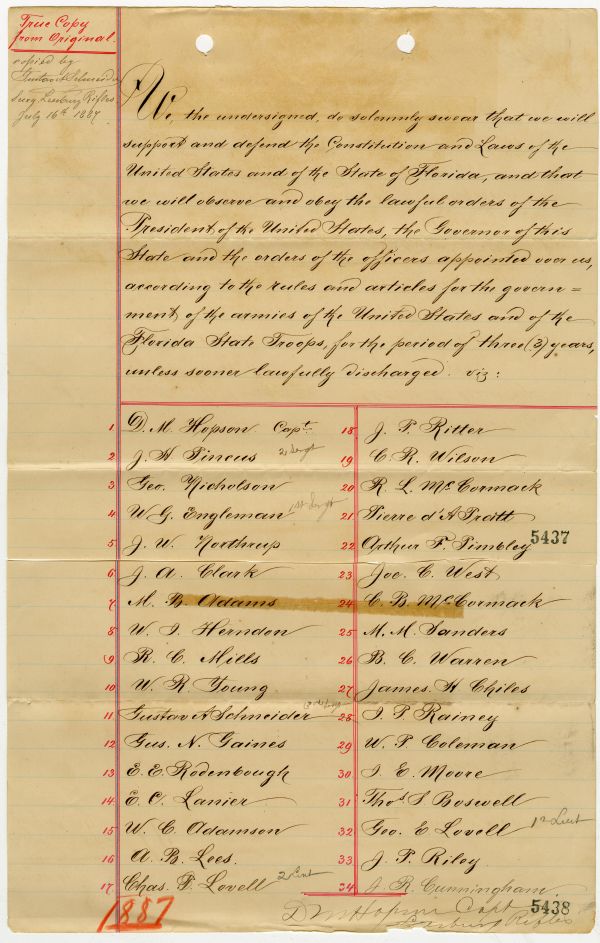 True Copy
from Original.
copied by
Gustav A Schneider
Secy. Leesburg Rifles
July 16th 1887
We, the undersigned, do solemnly swear that we will
support and defend the Constitution and Laws of the
United States and of the State of Florida, and that
we will observe and obey the lawful orders of the
President of the United States, the Governor of this
State and the orders of the officers appointed over us,
according to the rules and articles for the govern=
ment of the armies of the United States and of the
Florida State Troops, for the period of three (3) years,
unless sooner lawfully discharged. viz:
1 D. M. Hopson Capt.
2 J. H Pincus 2 Sergt
3 Geo. Nicholson
4 W G. Engleman 1st Sergt
5 J. W. Northrup
6 J. A. Clark
7 M. B. Adams
8 W. J. Herndon
9 R. C. Mills
10 W. R. Young
11 Gustav A Schneider
12 Gus. N. Gaines
13 E. E. Rodenbough
14 E. O. Lanier
15 W. C. Adamson
16 A. B. Lees.
17 Chas. F. Lovell 2 Lieut
18 J. F. Ritter
19 C. R. Wilson
20 R. L. McCormack
21 Pierre d'A Pratt
22 Arthur F. Pimbley
5437
23 Joe. C. West
24 C. B. McCormack
25 M. M. Sanders
26 B. C. Warren
27 James. H Chiles
28 I. P. Rainey
29 W. P. Coleman
30 I. E. Moore
31 Thos. S Boswell
32 Geo. E Lovell 1st Lieut
33 J. P. Riley.
34 J. R. Cunningham.
1887
D M Hopson Capt
Leesburg Rifles
5438